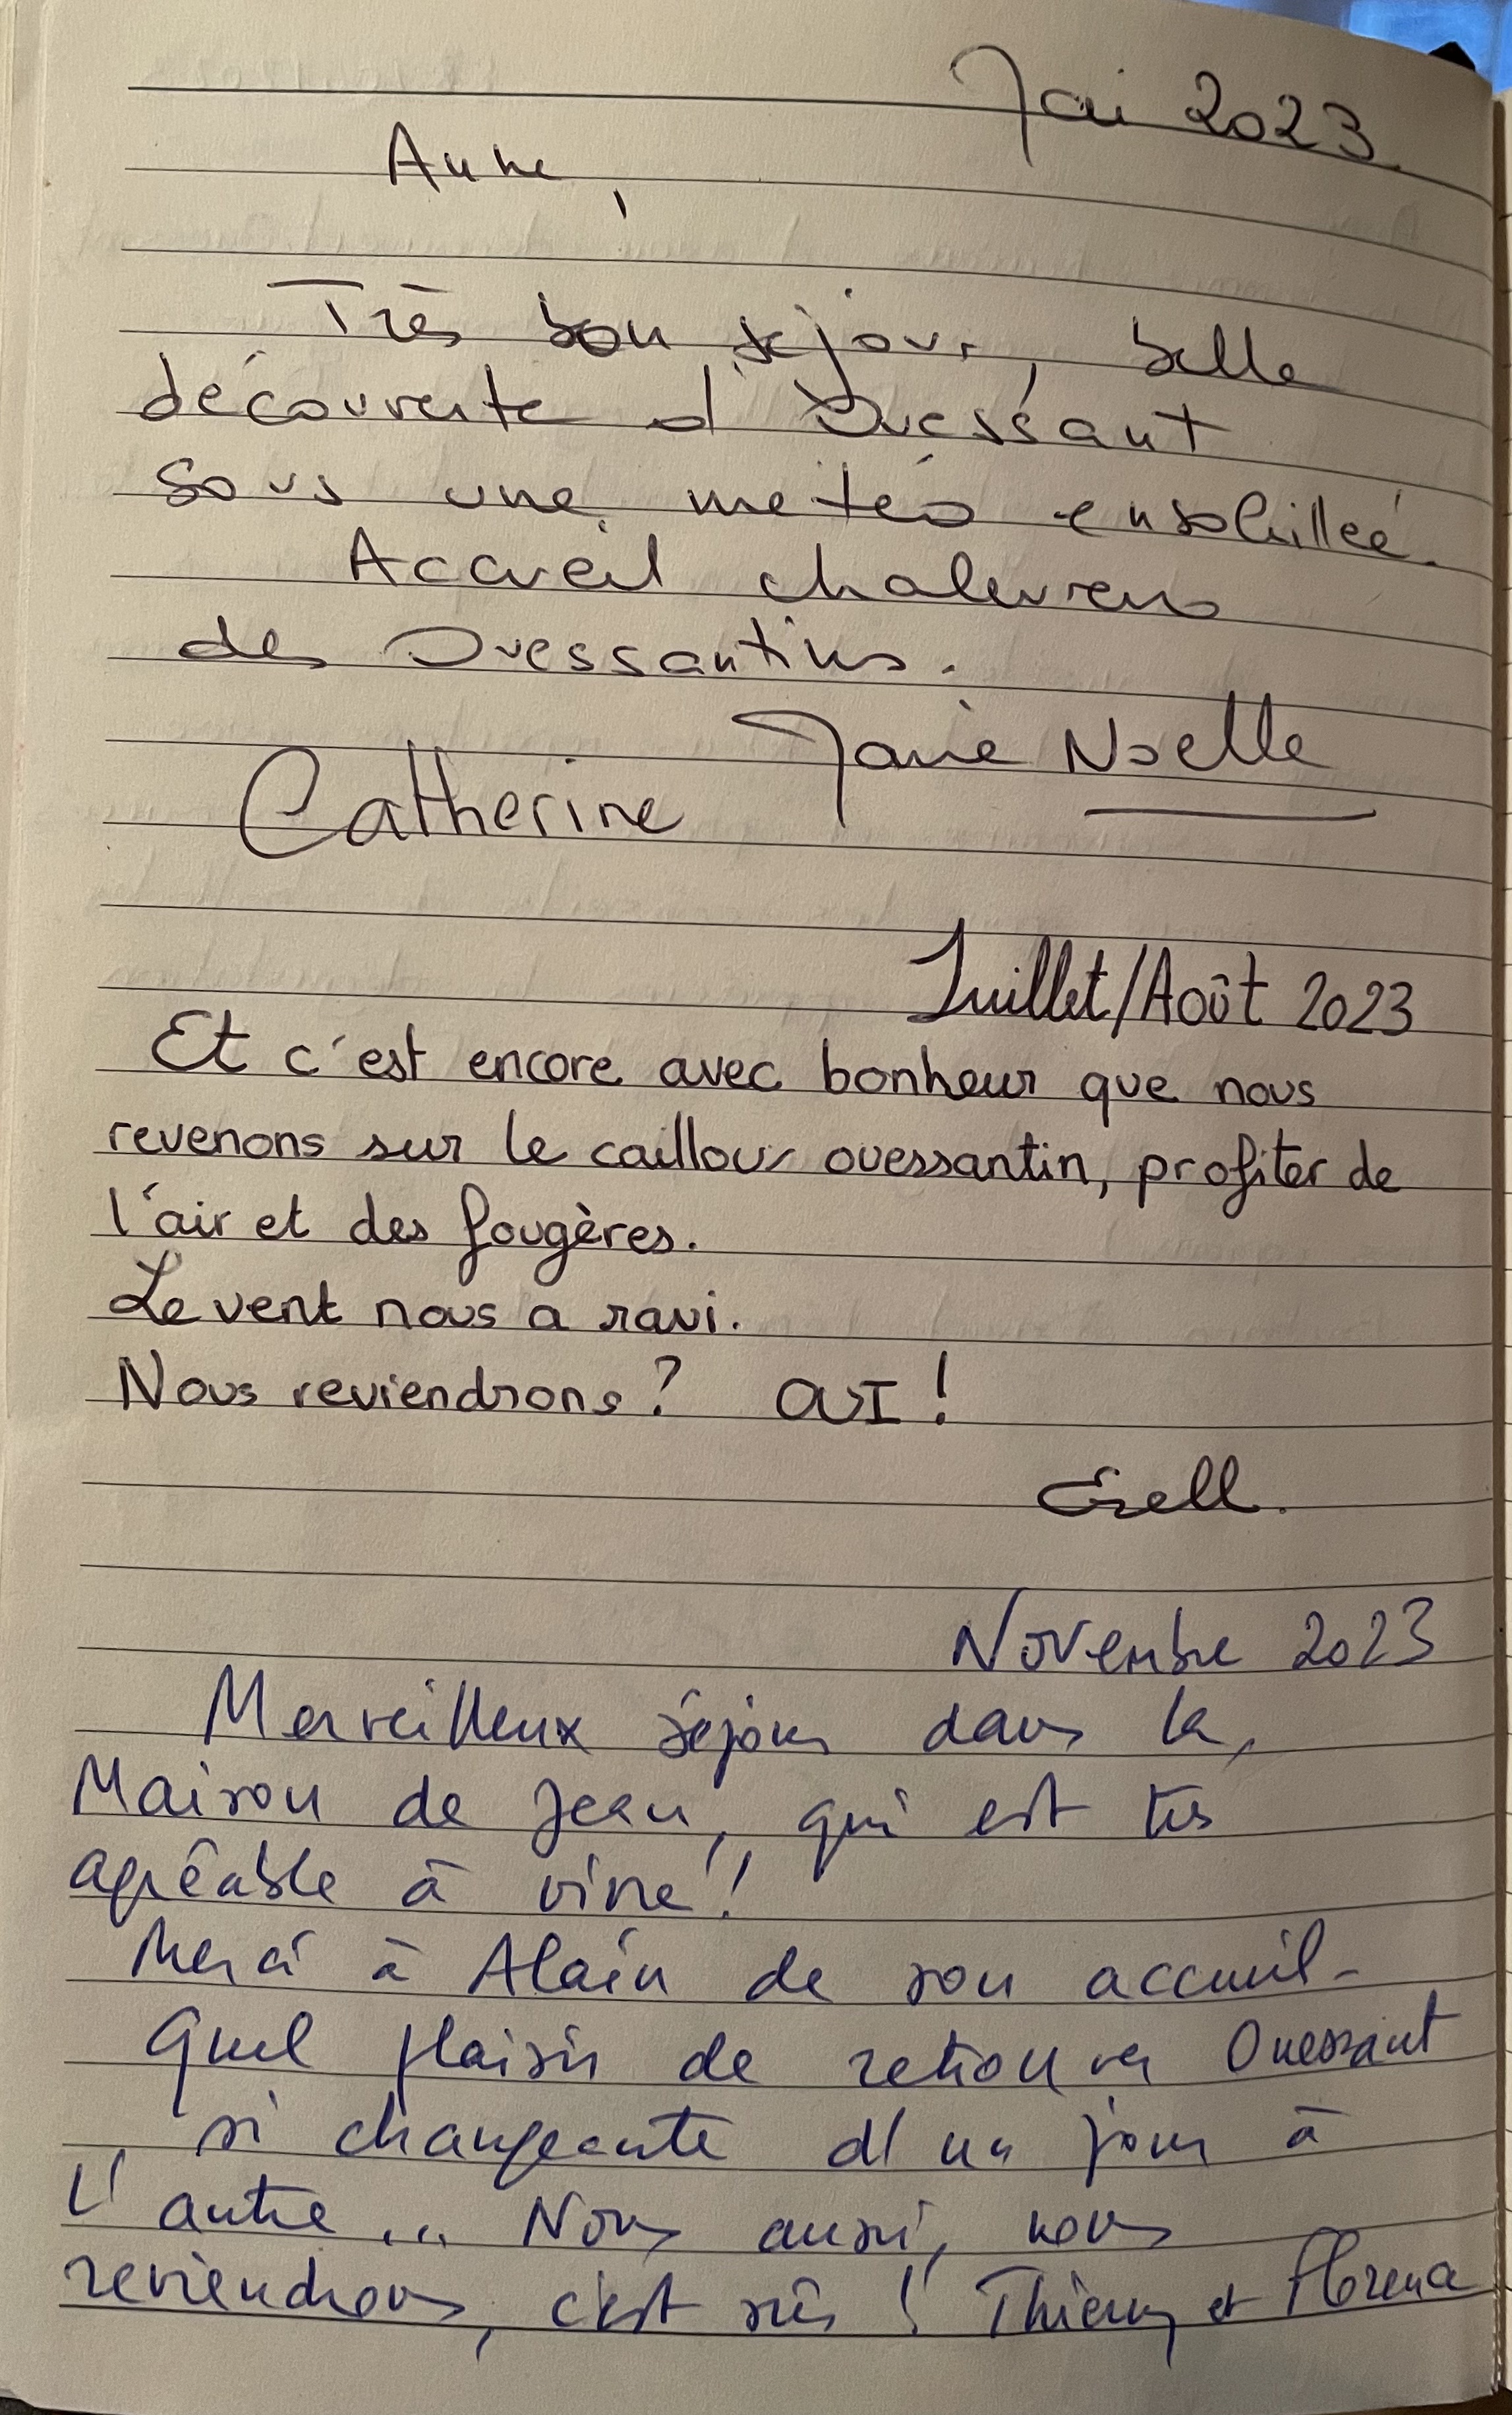 Mai 2023
Anne,
Très bon séjour, belle
découverte d'Ouessant
sous une météo ensoleillée.
Accueil chaleureux
des Ouessantins.
Marie Noelle
Catherine
Juillet/Août 2023
Et c'est encore avec bonheur que nous
revenons sur le caillou ouessantin, profiter de
l'air et des fougères.
Le vent nous a ravi.
Nous reviendrons ? OUI !
Erell.
Novembre 2023
Merveilleux séjour dans la
Maison de Jean, qui est très
agréable à vivre !
Merci à Alain de son accueil -
Quel plaisir de retrouver Ouessant
si changeante d'un jour à
l'autre ... Nous aussi, nous
reviendrons, c'est sûr ! Thierry et Florence